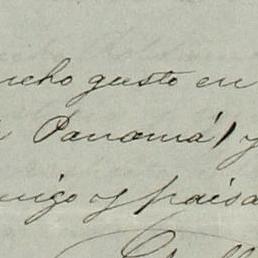 ucho gusto en
Panamá) y
migo y paisa